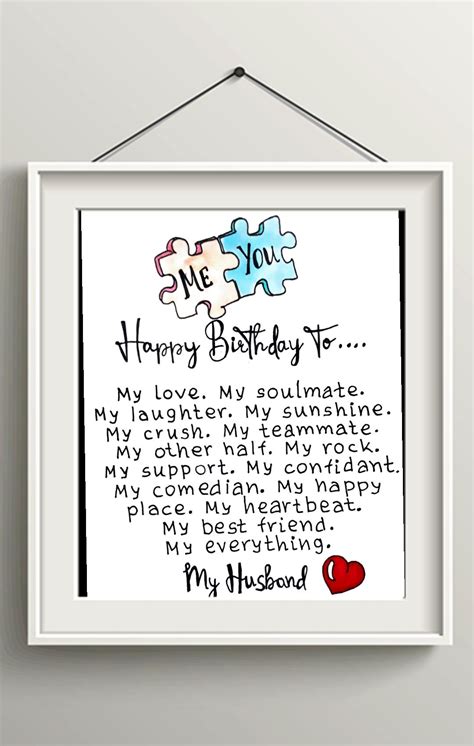 ME YOU
Happy Birthday To....
My love. My soulmate.
My laughter. My sunshine.
My crush. My teammate.
My other half. My rock.
My support. My confidant.
My comedian. My happy
place. My heartbeat.
My best friend.
My everything.
My Husband